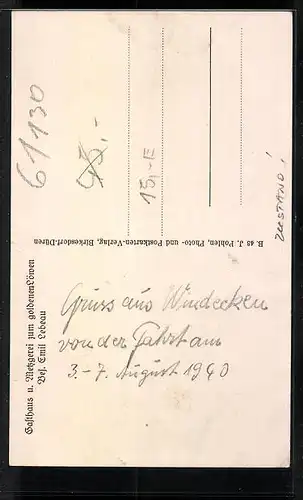 61130
45.-
15,-E
ZUSTAND!
B 48 J. Pohlen, Photo- und Postkarten-Verlag, Birkesdorf-Düren
Gasthaus u. Metzgerei zum goldenen Löwen
Bes. Emil Lebeau
Gruss aus Windecken
von der Fahrt am
3.-7. August 1940